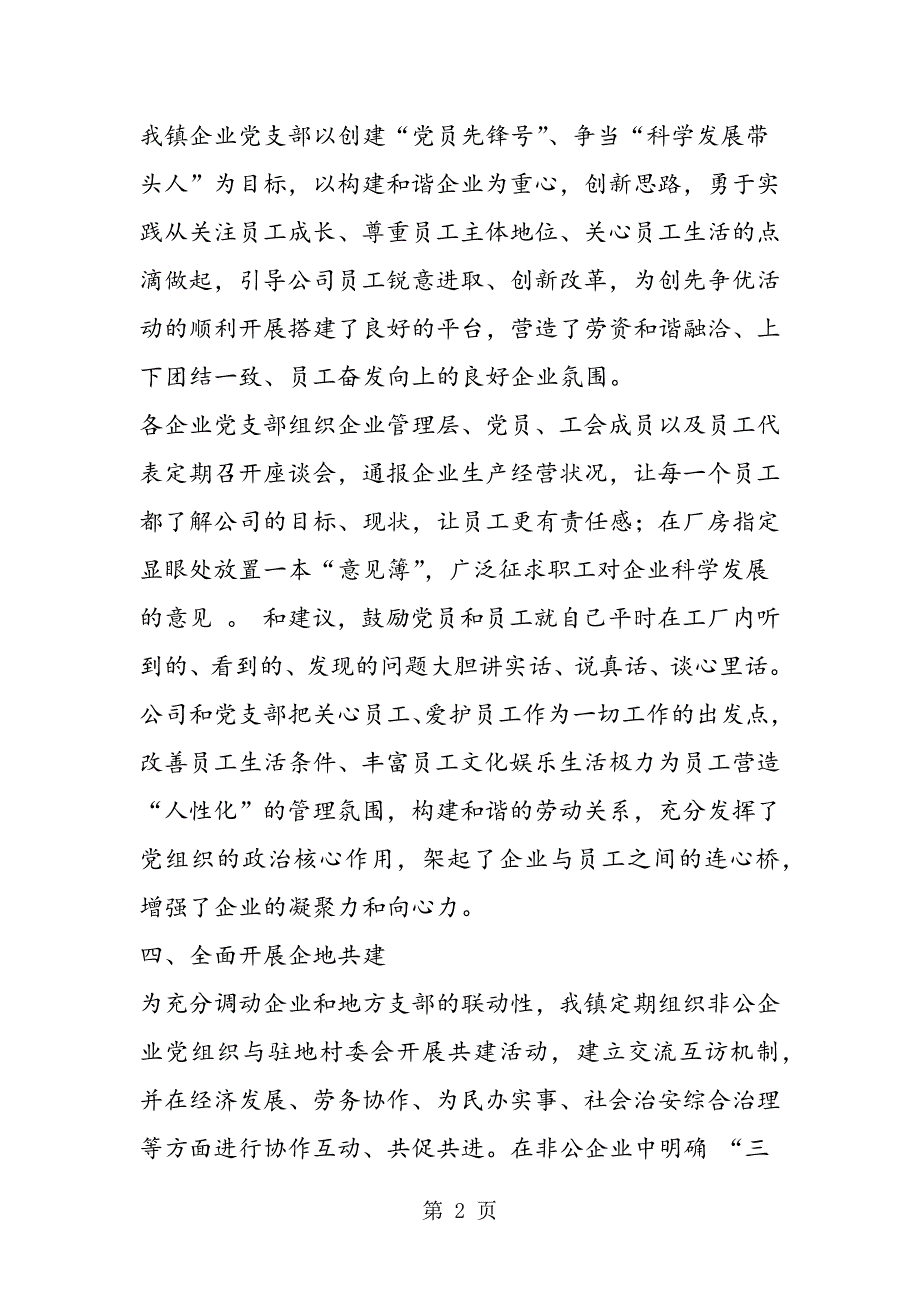 我镇企业党支部以创建“党员先锋号”、争当“科学发展带
头人”为目标，以构建和谐企业为重心，创新思路，勇于实
践从关注员工成长、尊重员工主体地位、关心员工生活的点
滴做起，引导公司员工锐意进取、创新改革，为创先争优活
动的顺利开展搭建了良好的平台，营造了劳资和谐融洽、上
下团结一致、员工奋发向上的良好企业氛围。
各企业党支部组织企业管理层、党员、工会成员以及员工代
表定期召开座谈会，通报企业生产经营状况，让每一个员工
都了解公司的目标、现状，让员工更有责任感；在厂房指定
显眼处放置一本“意见簿”，广泛征求职工对企业科学发展
的意见 。 和建议，鼓励党员和员工就自己平时在工厂内听
到的、看到的、发现的问题大胆讲实话、说真话、谈心里话。
公司和党支部把关心员工、爱护员工作为一切工作的出发点，
改善员工生活条件、丰富员工文化娱乐生活极力为员工营造
“人性化”的管理氛围，构建和谐的劳动关系，充分发挥了
党组织的政治核心作用，架起了企业与员工之间的连心桥，
增强了企业的凝聚力和向心力。
四、全面开展企地共建
为充分调动企业和地方支部的联动性，我镇定期组织非公企
业党组织与驻地村委会开展共建活动，建立交流互访机制，
并在经济发展、劳务协作、为民办实事、社会治安综合治理
等方面进行协作互动、共促共进。在非公企业中明确 “三
第 2 页